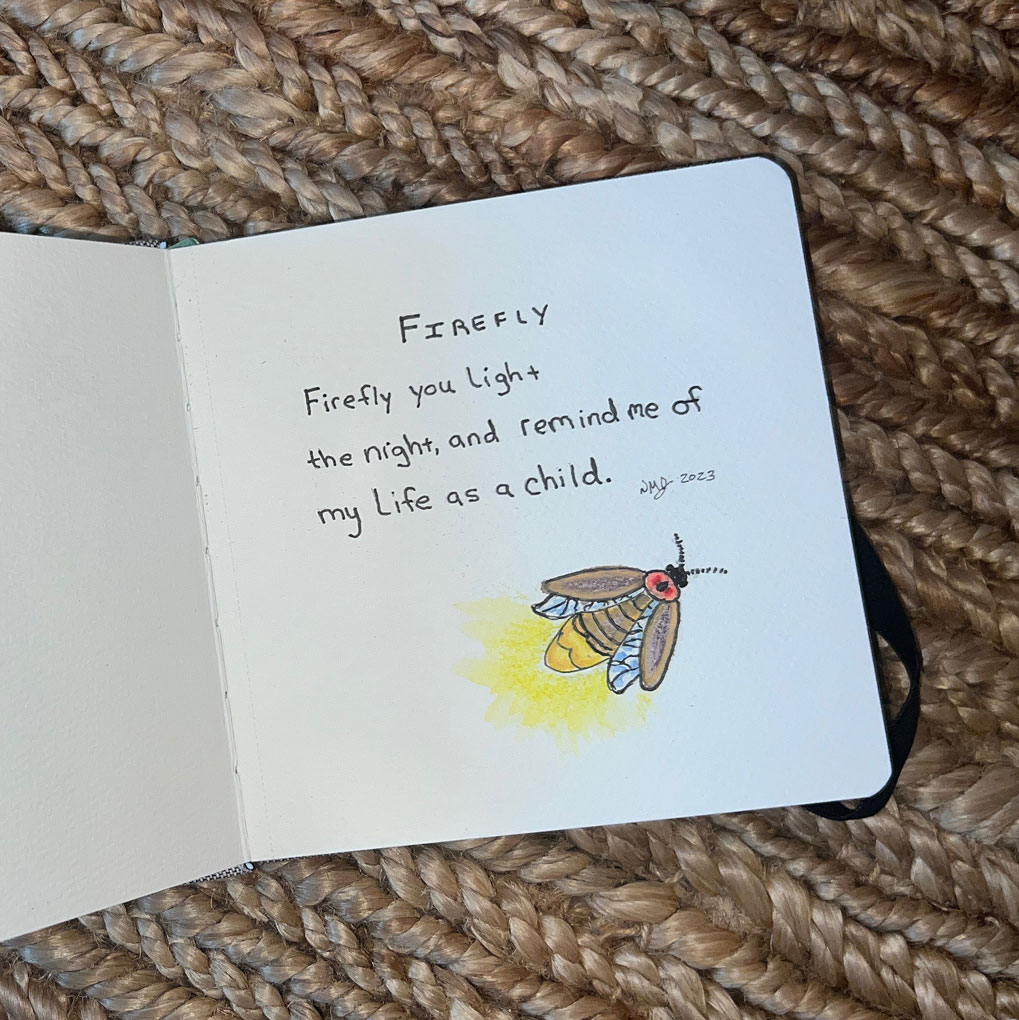 FIREFLY
Firefly you Light
the night, and remind me of
my Life as a child.
NMJ 2023